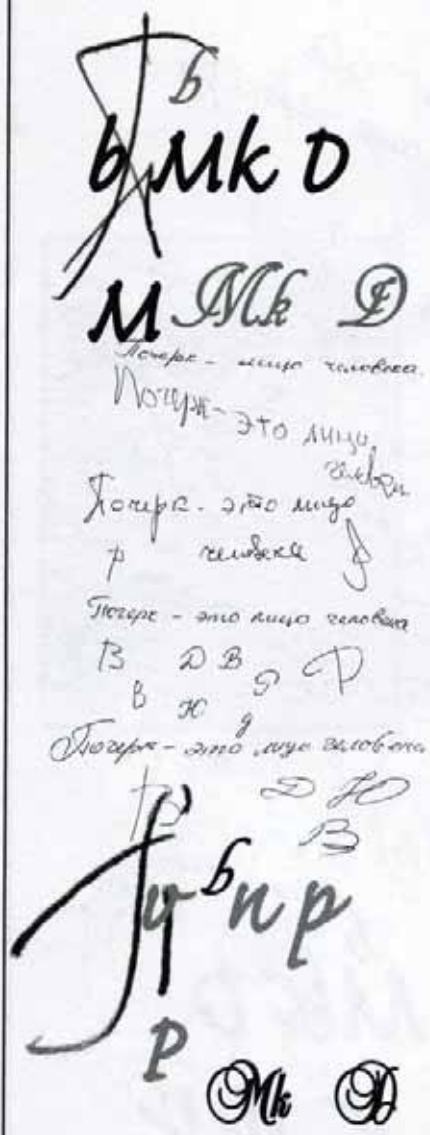 b
b Mk D
M Mk D
Почерк - лицо человека.
Почерк - это лицо
человека
Почерк - это лицо
р человека
Почерк - это лицо человека
В Д В Я Ф
в Ю
д
Почерк - это лицо человека
В Д Ю
В
b
v n p
p
Mk D